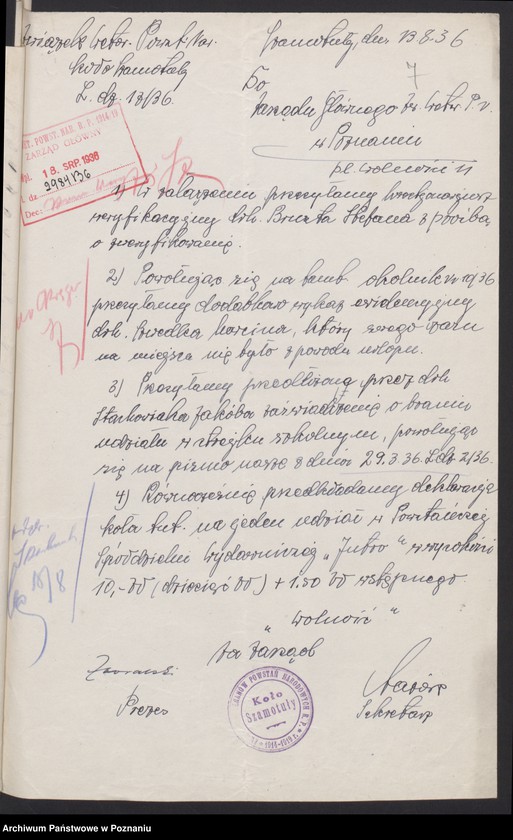 Związek Weter. Powst. Nar.
Koło Szamotuły
L. dz. 18/36.
Szamotuły, dnia 13.8.36
7
Do
Zarządu Głównego Zw. Weter. P. N.
w Poznaniu
pl. Wolności 11
ZARZĄD GŁÓWNY
18. SRP. 1936
3984/36
1) W załączeniu przesyłamy kwestjonarjusz
weryfikacyjny drh. Stefana z prośbą
o zweryfikowanie.
2) Powołując się na tamt. okólnik nr 10/36
przesyłamy dodatkowo wykaz ewidencyjny
drh. Marcina, który swego czasu
na miejscu nie było z powodu urlopu.
3) Przesyłamy przedłożone przez drh
Stachowiaka Jakóba zaświadczenie o braniu
udziału w strajku szkolnym, powołując
się na pismo nasze z dnia 29.3.36. L.dz. 2/36.
4) Równocześnie przedkładamy deklarację
koła tut. na jeden udział w Powstańczej
Spółdzielni Wydawniczej „Jutro" w wysokości
10,- zł (dziesięć zł) + 1.50 zł wstępnego.
18/8
„Wolność"
Za Zarząd
Prezes
Sekretarz
POWSTAŃ NARODOWYCH R. P.
Koło
Szamotuły
1914-1919
Archiwum Państwowe w Poznaniu